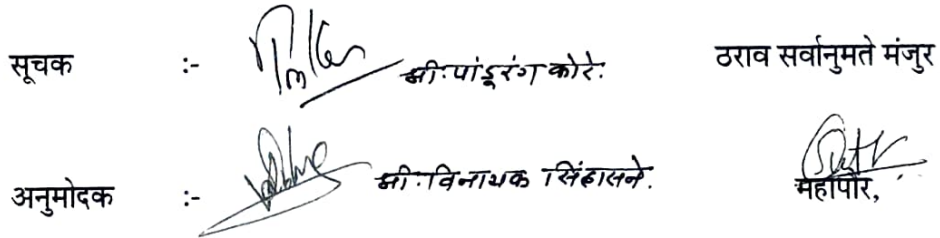 सूचक :- श्री. पांडूरंग कोरे. ठराव सर्वानुमते मंजुर
अनुमोदक :- श्री. विनायक सिंहासने.
महापौर,